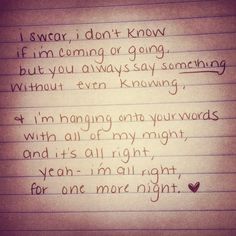 i swear, i don't know
if i'm coming or going.
but you always say something
without even knowing,
& i'm hanging onto your words
with all of my might,
and it's all right,
yeah- i'm all right,
for one more night. ♥